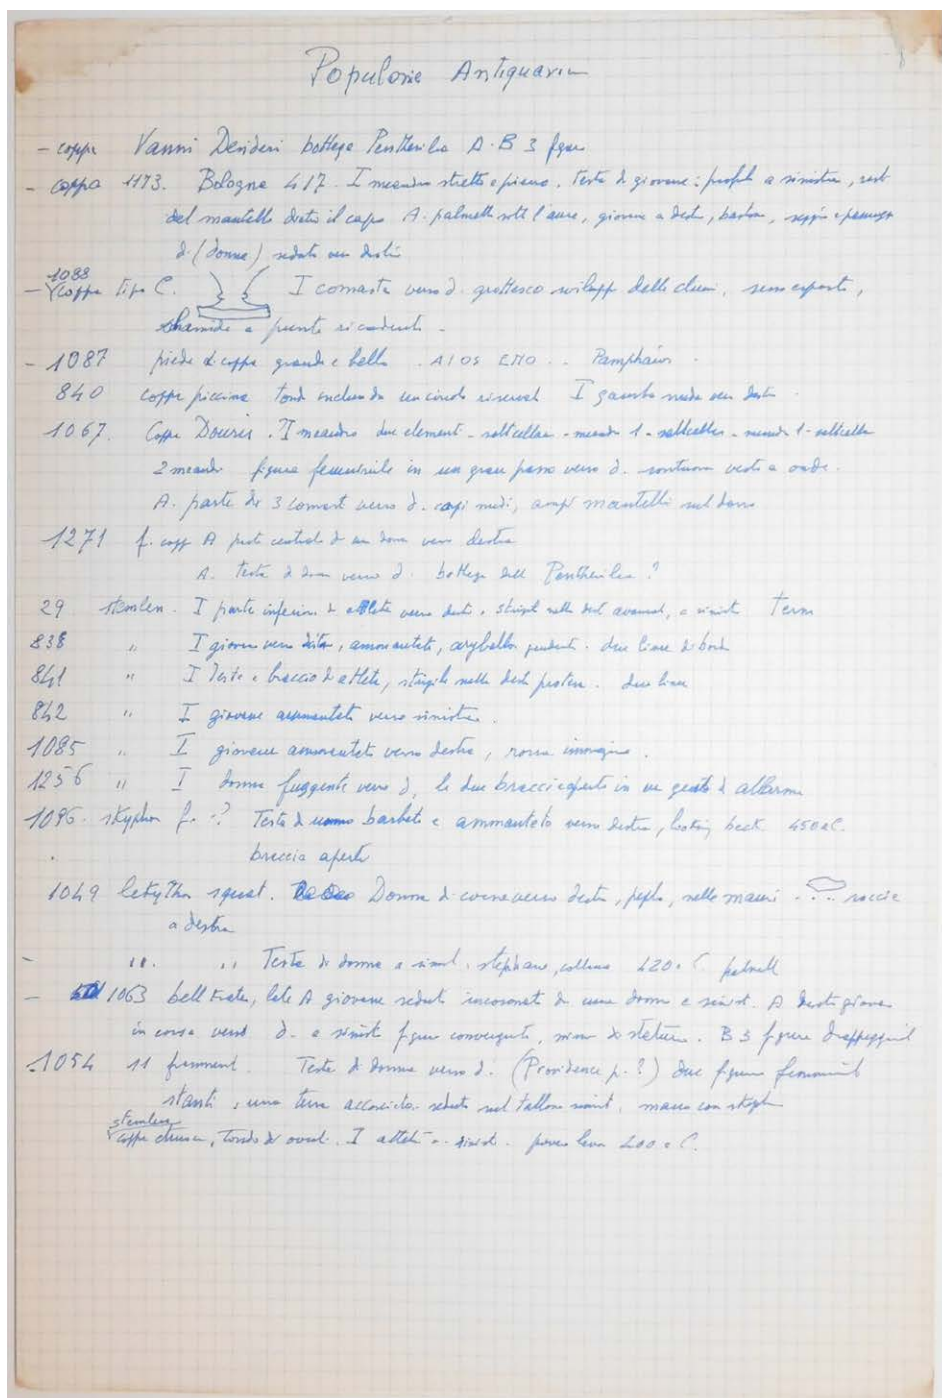 Populonia Antiquarium
- coppa Vanni Desideri bottega Penthesilea A-B 3 figure
- coppa 1173. Bologna 417. I meandro stretto e piano. Testa di giovane: profilo a sinistra,
del mantello dietro il capo A. palmette sotto l'anse, giovane a destra, bastone,
d. (donna) seduta verso destra
1088
- coppa tipo C. I comasta verso d. grottesco sviluppo delle clami, seno coperto,
clamide a punte ricadenti.
- 1087 piede di coppa grande e bella. AIOS EΠO.. Pamphaios.
840 coppa piccina tondo incluso da un circolo riservato I gamba nuda verso destra.
1067. Coppa Douris. I meandro due elementi - salteллar - meandro 1 - - meandro 1 -
2 meandri figura femminile in un gran passo verso d. sontuosa veste a onde.
A. parte di 3 comasti verso d. corpi nudi, ampi mantelli sul dorso
1271 f. coppa A parte centrale di una donna verso destra
A. testa di donna verso d. bottega del Penthesilea?
29 stemless. I parte inferiore di atleta verso destra, strigile nella destra avanzata, a sinistra Terma
838 " I giovane verso destra, ammantato, aryballos pendente. due linee di bordo
841 " I Testa e braccio di atleta, strigile nella destra protesa. due linee
842 " I giovane ammantato verso sinistra.
1085 " I giovane ammantato verso destra, rozza immagine.
1256 " I donna fuggente verso d, le due braccia aperte in un gesto di allarme
1096. skyphos f. -? Testa di uomo barbato e ammantato verso destra, looking back. 450 a C.
braccia aperte
1049 lekythos squat. Donna di corsa verso destra, peplo, nelle mani ... roccia
a destra
- " " Testa di donna a sinist. stephane, collana 420 a C palmette
- 1063 bell krater, lato A giovane seduto incoronato da una donna a sinist. A destra giovane
in corsa verso d. a sinistra figura convergente, minor di statura. B 3 figure drappeggiate
- 1054 11 frammenti. Testa di donna verso d. (Providence p.?) due figure femminili
stanti, una terza accosciata seduta sul tallone sinist, mano con
stemless
coppa chiusa, Tondo di ovuli. I atleta a sinist. 400 a C.